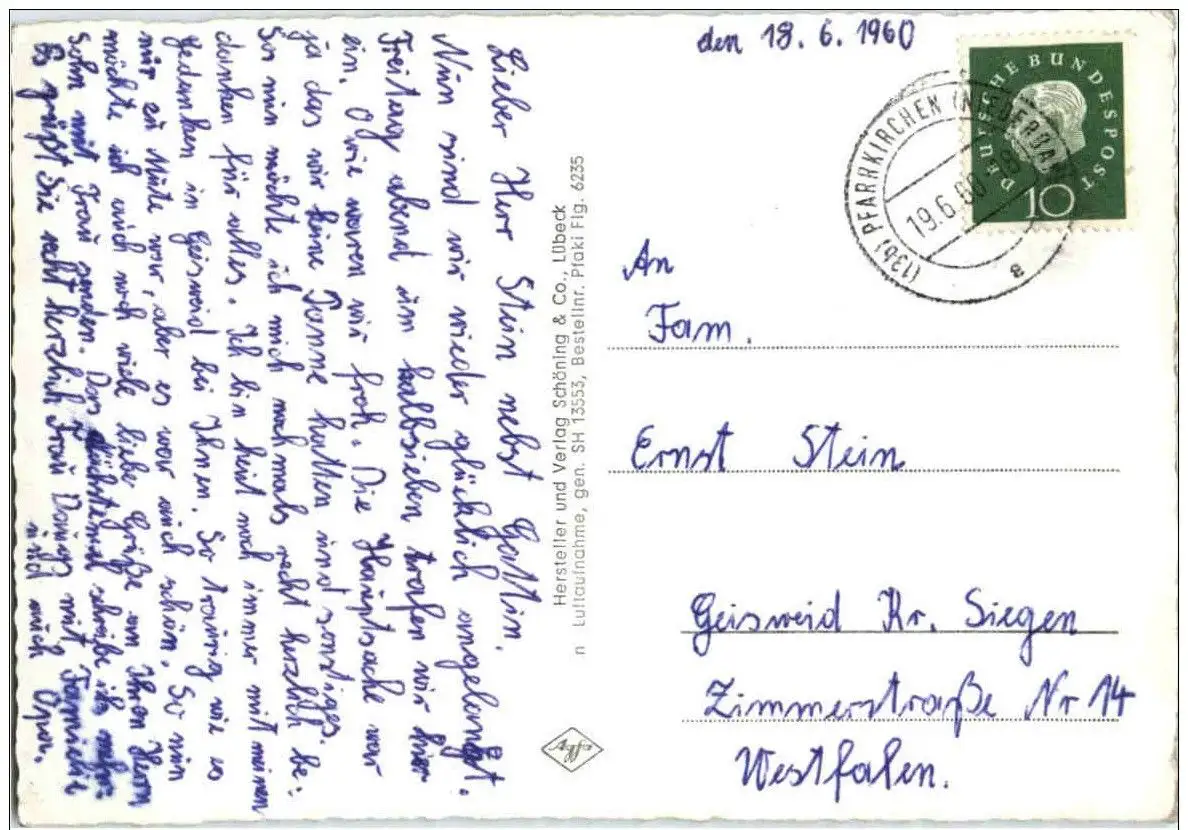 den 18. 6. 1960
DEUTSCHE BUNDESPOST
10
(13b) PFARRKIRCHEN (NIEDERBAY
19.6.60 18
a
Lieber Herr Stein nebst Gattin.
Nun sind wir wieder glücklich angelangt.
Freitag abend um halbsieben trafen wir hier
ein. O wie waren wir froh. Die Hauptsache war
ja das wir keine Panne hatten und sonstiges.
So nun möchte ich mich nochmals recht herzlich be:
danken für alles. Ich bin heut noch immer mit meinen
Gedanken in Geisweid bei Ihnen. So traurig wie es
mir zu Mute war, aber es war auch schön. So nun
möchte ich auch noch viele liebe Grüße an Ihren Herrn
Sohn mit Frau senden. Das nächstemal schreibe ich mehr
Es grüßt Sie recht herzlich Frau mit Familie
und auch Opa.
Hersteller und Verlag Schöning & Co., Lübeck
n Luftaufnahme, gen. SH 13553, Bestellnr. Pfaki Flg. 6235
An
Fam.
Ernst Stein
Geisweid Kr. Siegen
Zimmerstraße Nr 14
Westfalen.